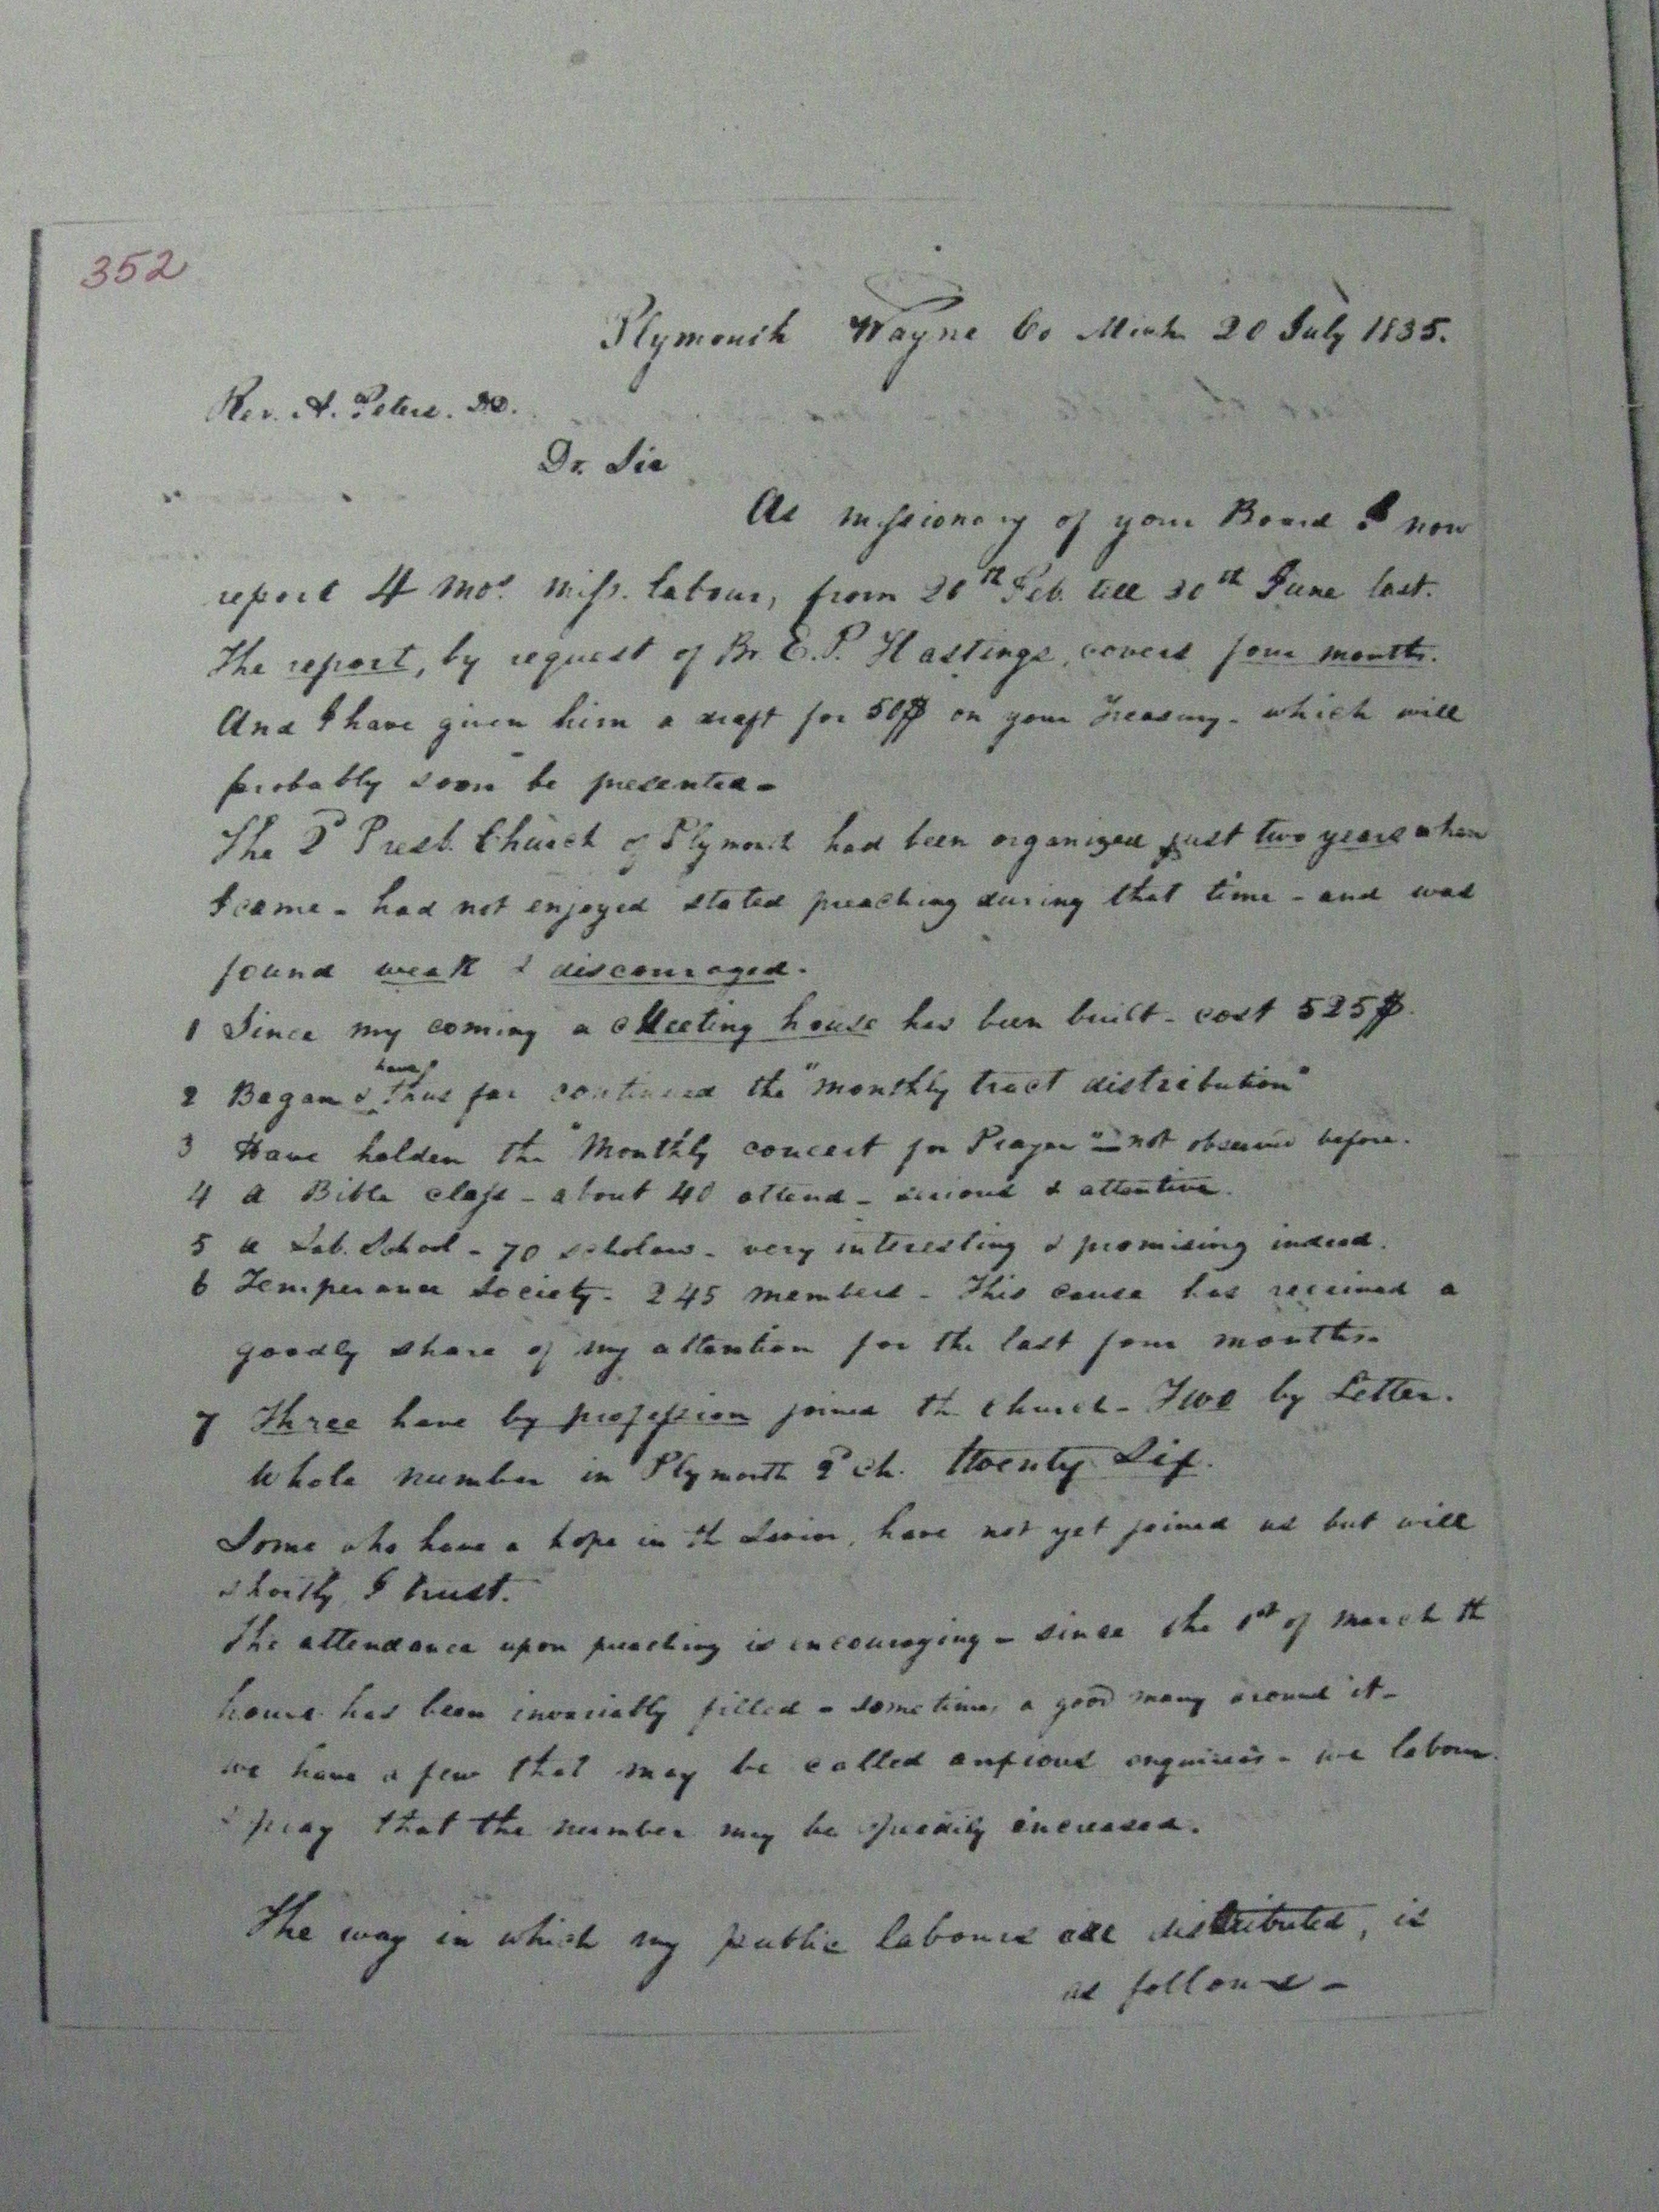 352
Plymouth Wayne Co Mich 20 July 1835.
Rev. A. Peters. DD.
Dr. Sir
As missionary of your Board I now
report 4 mos. miss. labour, from 20th Feb. till 20th June last.
The report, by request of Br. E. P. Hastings, covers four months.
And I have given him a draft for 50$ on your Treasury - which will
probably soon be presented -
The 2d Presb. Church of Plymouth had been organized just two years when
I came - had not enjoyed stated preaching during that time - and was
found weak & discouraged.
1 Since my coming a Meeting house has been built - cost 525$.
2 Began & have thus far continued the "monthly tract distribution"
3 Have holden the "Monthly concert for Prayer" - not observed before.
4 A Bible class - about 40 attend - serious & attentive.
5 A Sab. School - 70 scholars - very interesting & promising indeed.
6 Temperance Society - 245 members - This cause has received a
goodly share of my attention for the last four months.
7 Three have by profession joined the church - Two by Letter.
Whole number in Plymouth 2d ch. twenty Six.
Some who have a hope in th Savior, have not yet joined us but will
shortly I trust.
The attendance upon preaching is encouraging - since the 1st of march th
house has been invariably filled - sometimes a good many around it -
we have a few that may be called anxious enquirers - we labour
& pray that the number may be speedily increased.
The way in which my public labours are distributed, is
as follows -